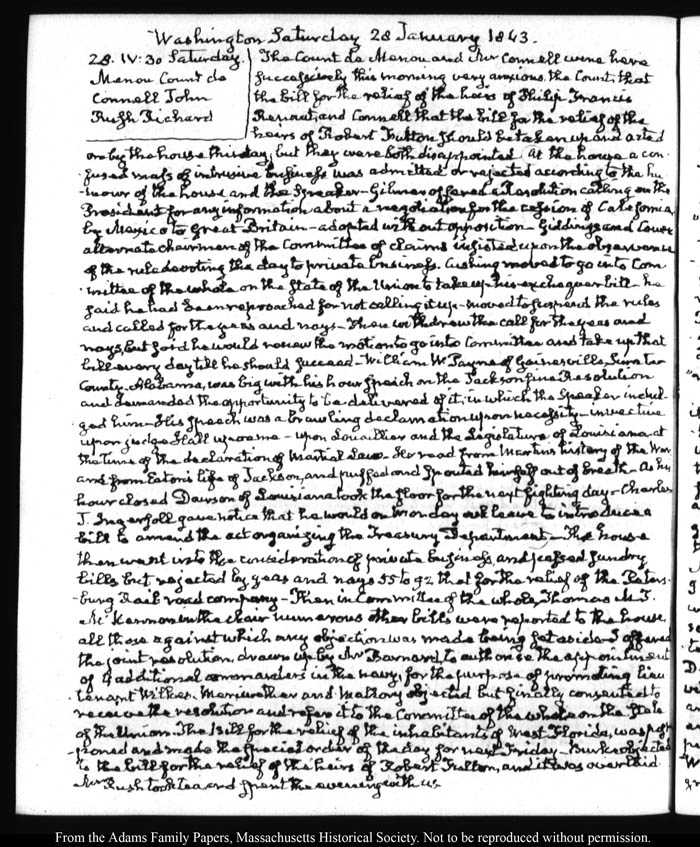 Washington Saturday 28 January 1843.
28. IV:30 Saturday.
Menou Count de
Connell John
Rush Richard
The Count de Menou and Mr Connell were here
successively this morning very anxious, the Count, that
the bill for the relief of the heirs of Philip Francis
Renaut, and Connell that the bill for the relief of the
heirs of Robert Fulton should be taken up and acted
on by the house this day; but they were both disappointed. At the house a con-
-fused mass of intrusive business was admitted or rejected according to the hu-
-mour of the house and the Speaker. Gilmer offered a Resolution calling on the
President for any information about a negotiation for the cession of California,
by Mexico to Great Britain—adopted without opposition—Giddings and Cowen
alternate chairmen of the Committee of claims insisted upon the observance
of the rule devoting the day to private business. Cushing moved to go into Com-
-mittee of the whole on the State of the Union to take up his exchequer bill—he
said he had been reproached for not calling it up—moved to suspend the rules
and called for the yeas and nays—Then withdrew the call for the yeas and
nays, but said he would renew the motion to go into Committee and take up that
bill every day till he should succeed—William W. Payne of Gainesville, Sumter
County, Alabama, was big with his hour speech on the Jackson fine Resolution
and demanded the opportunity to be delivered of it, in which the Speaker indul-
ged him—His speech was a brawling declamation upon necessity—invective
upon judge Hall upon me—upon Louaillier and the Legislature of Louisiana at
the time of the declaration of Martial Law. He read from Martin's history of the War
and from Eaton's life of Jackson, and puffed and spouted himself out of breath. As his
hour closed Dawson of Louisiana took the floor for the next fighting day—Charles
J. Ingersoll gave notice that he would on Monday ask leave to introduce a
bill to amend the act organizing the Treasury Department—The house
then went into the consideration of private business and passed sundry
bills but rejected by yeas and nays 55 to 92 that for the relief of the Peters-
-burg Rail road company—Then in Committee of the whole, Thomas M. T.
McKennon in the chair numerous other bills were reported to the house,
all those against which any objection was made being set aside. I offered
the joint resolution, drawn up by Mr Barnard, to authorise the appointment
of 4 additional commanders in the navy, for the purpose of promoting lieu-
-tenant Wilkes. Meriwether and Mallory objected but finally consented to
receive the resolution and refer it to the Committee of the whole on the State
of the Union. The Bill for the relief of the inhabitants of West Florida, was post-
-poned and made the special order of the day for next Friday—Burke objected
to the bill for the relief of the heirs of Robert Fulton, and it was over laid
Mr Rush took tea and spent the evening with us.
From the Adams Family Papers, Massachusetts Historical Society. Not to be reproduced without permission.